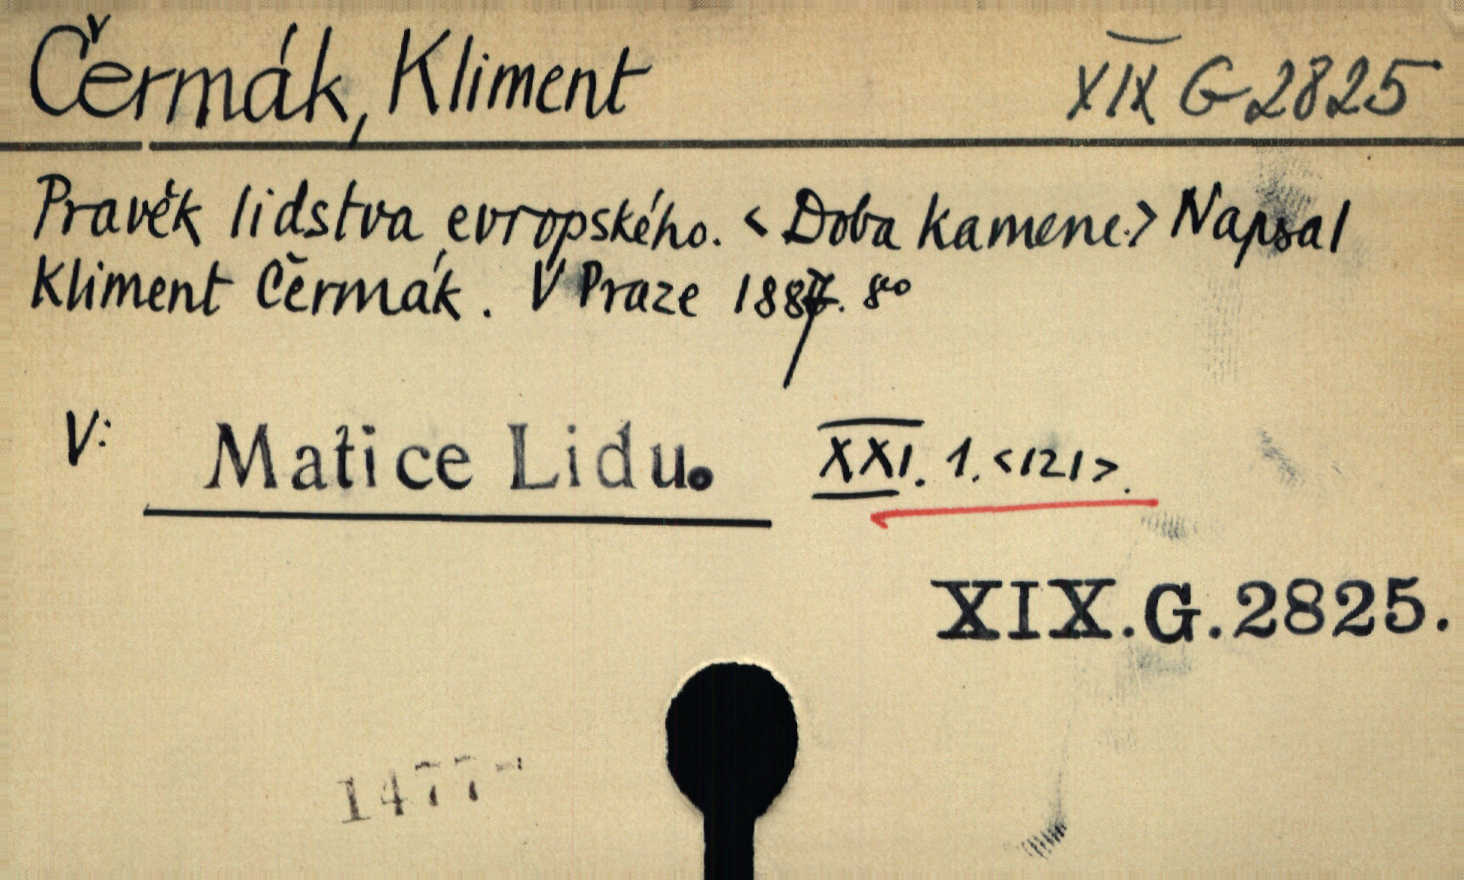 Čermák, Kliment XIX G 2825
Pravěk lidstva evropského. <Doba kamene.> Napsal
Kliment Čermák. V Praze 1887. 8°
V: Matice Lidu. XXI. 1. <121>.
XIX.G.2825.
1477-